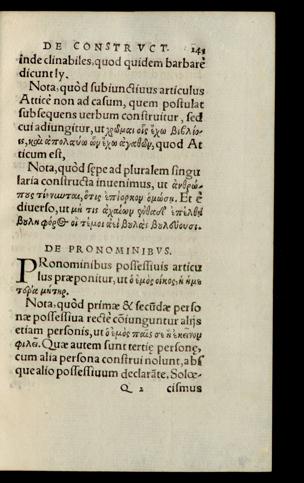 DE CONSTRVCT. 241
inde clinabiles, quod quidem barbarè
dicunt ly.
Nota, quòd subiunctiuus articulus
Atticè non ad casum, quem postulat
subsequens uerbum construitur, sed
cui adiungitur, ut χρῶμαι οἷς ἔχω βιβλίο-
ις, καὶ ἀπολαύω ὧν ἔχω ἀγαθῶν, quod At
ticum est,
Nota, quòd sępe ad pluralem singu
laria constructa inuenimus, ut ἀνθρώ-
πους τίννυνται, ὅτις ἐπίορκον ὀμόσῃ. Et è
diuerso, ut μή τις ἀχαιῶν
βουληφόρ οἵ τέ μοι αἰεὶ βουλὰς βουλεύουσι.
DE PRONOMINIBVS.
PRonominibus possessiuis articu
lus præponitur, ut ὁ ἐμὸς οἶκος, ἡ ἡμε
τέρα μήτηρ.
Nota, quòd primæ & secūdæ perso
næ possessiua rectè cōiunguntur alijs
etiam personis, ut ὁ ἐμὸς παῖς σε ἢ ἐκεῖνον
φιλεῖ. Quæ autem sunt tertię personę,
cum alia persona construi nolunt, absꝗ
que alio possessiuum declarāte. Solœ-
Q 2 cismus